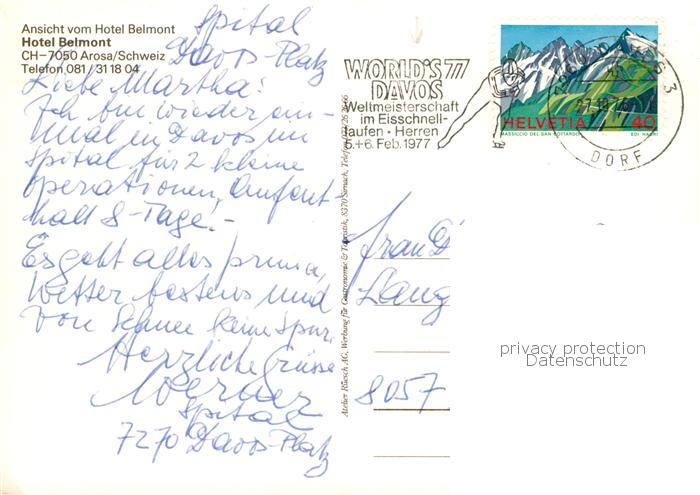 Ansicht vom Hotel Belmont
Hotel Belmont
CH-7050 Arosa/Schweiz
Telefon 081/31 18 04
Spital
Davos-Platz
Liebe Martha!
Ich bin wieder ein-
mal in Davos im
Spital für 2 kleine
Operationen, Aufent-
halt 8-Tage.-
Es geht alles prima,
Wetter bestens und
von Schnee keine Spur.
Herzliche Grüsse
Werner
Spital
7270 Davos-Platz
Atelier Rüesch AG, Werbung für Gastronomie & Touristik, 8370 Sirnach, Telefon
WORLD'S 77
DAVOS
Weltmeisterschaft
im Eisschnell-
laufen • Herren
5.+6. Feb. 1977
HELVETIA 40
MASSICCIO DEL SAN GOTTARDO
EDI HAURI
DORF
3
Frau
Lang
8057
privacy protection
Datenschutz